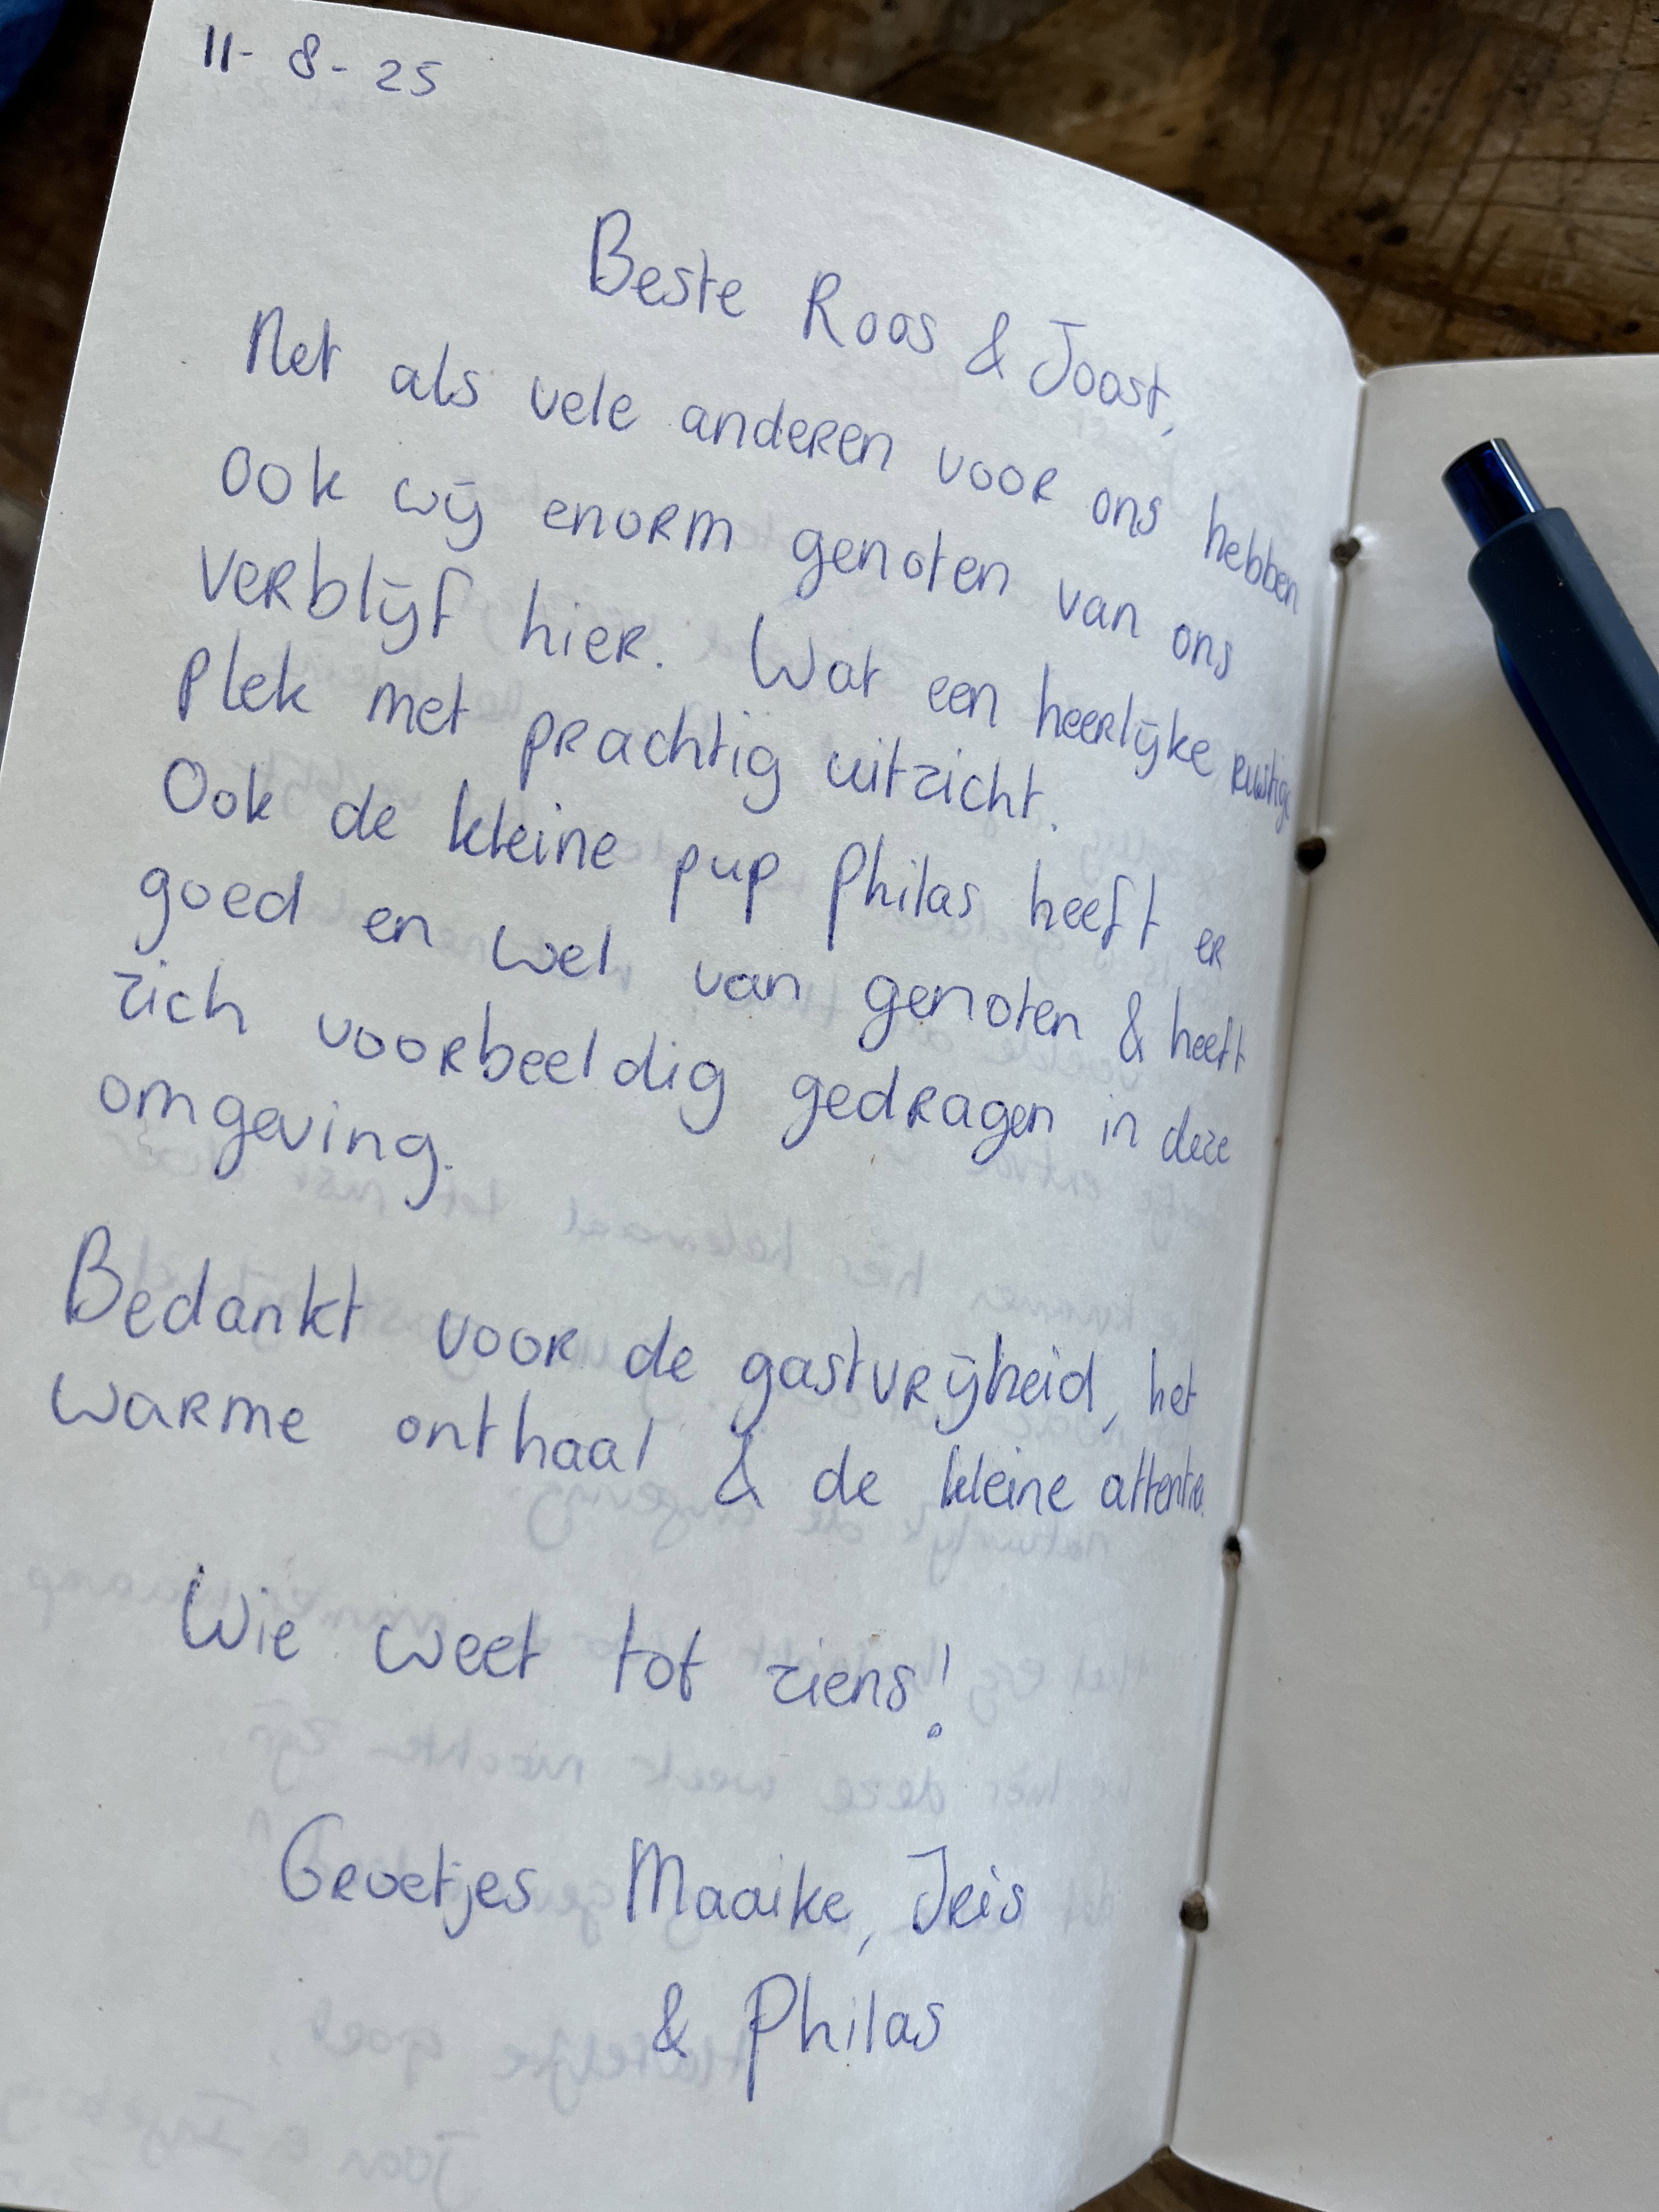 11-8-25
Beste Roos & Joost,
Net als vele anderen voor ons hebben
ook wij enorm genoten van ons
verblijf hier. Wat een heerlijke rustige
plek met prachtig uitzicht.
Ook de kleine pup Philas heeft er
goed en wel van genoten & heeft
zich voorbeeldig gedragen in deze
omgeving.
Bedankt voor de gastvrijheid, het
warme onthaal & de kleine attentie.
Wie weet tot ziens!
Groetjes Maaike, Iris
& Philas